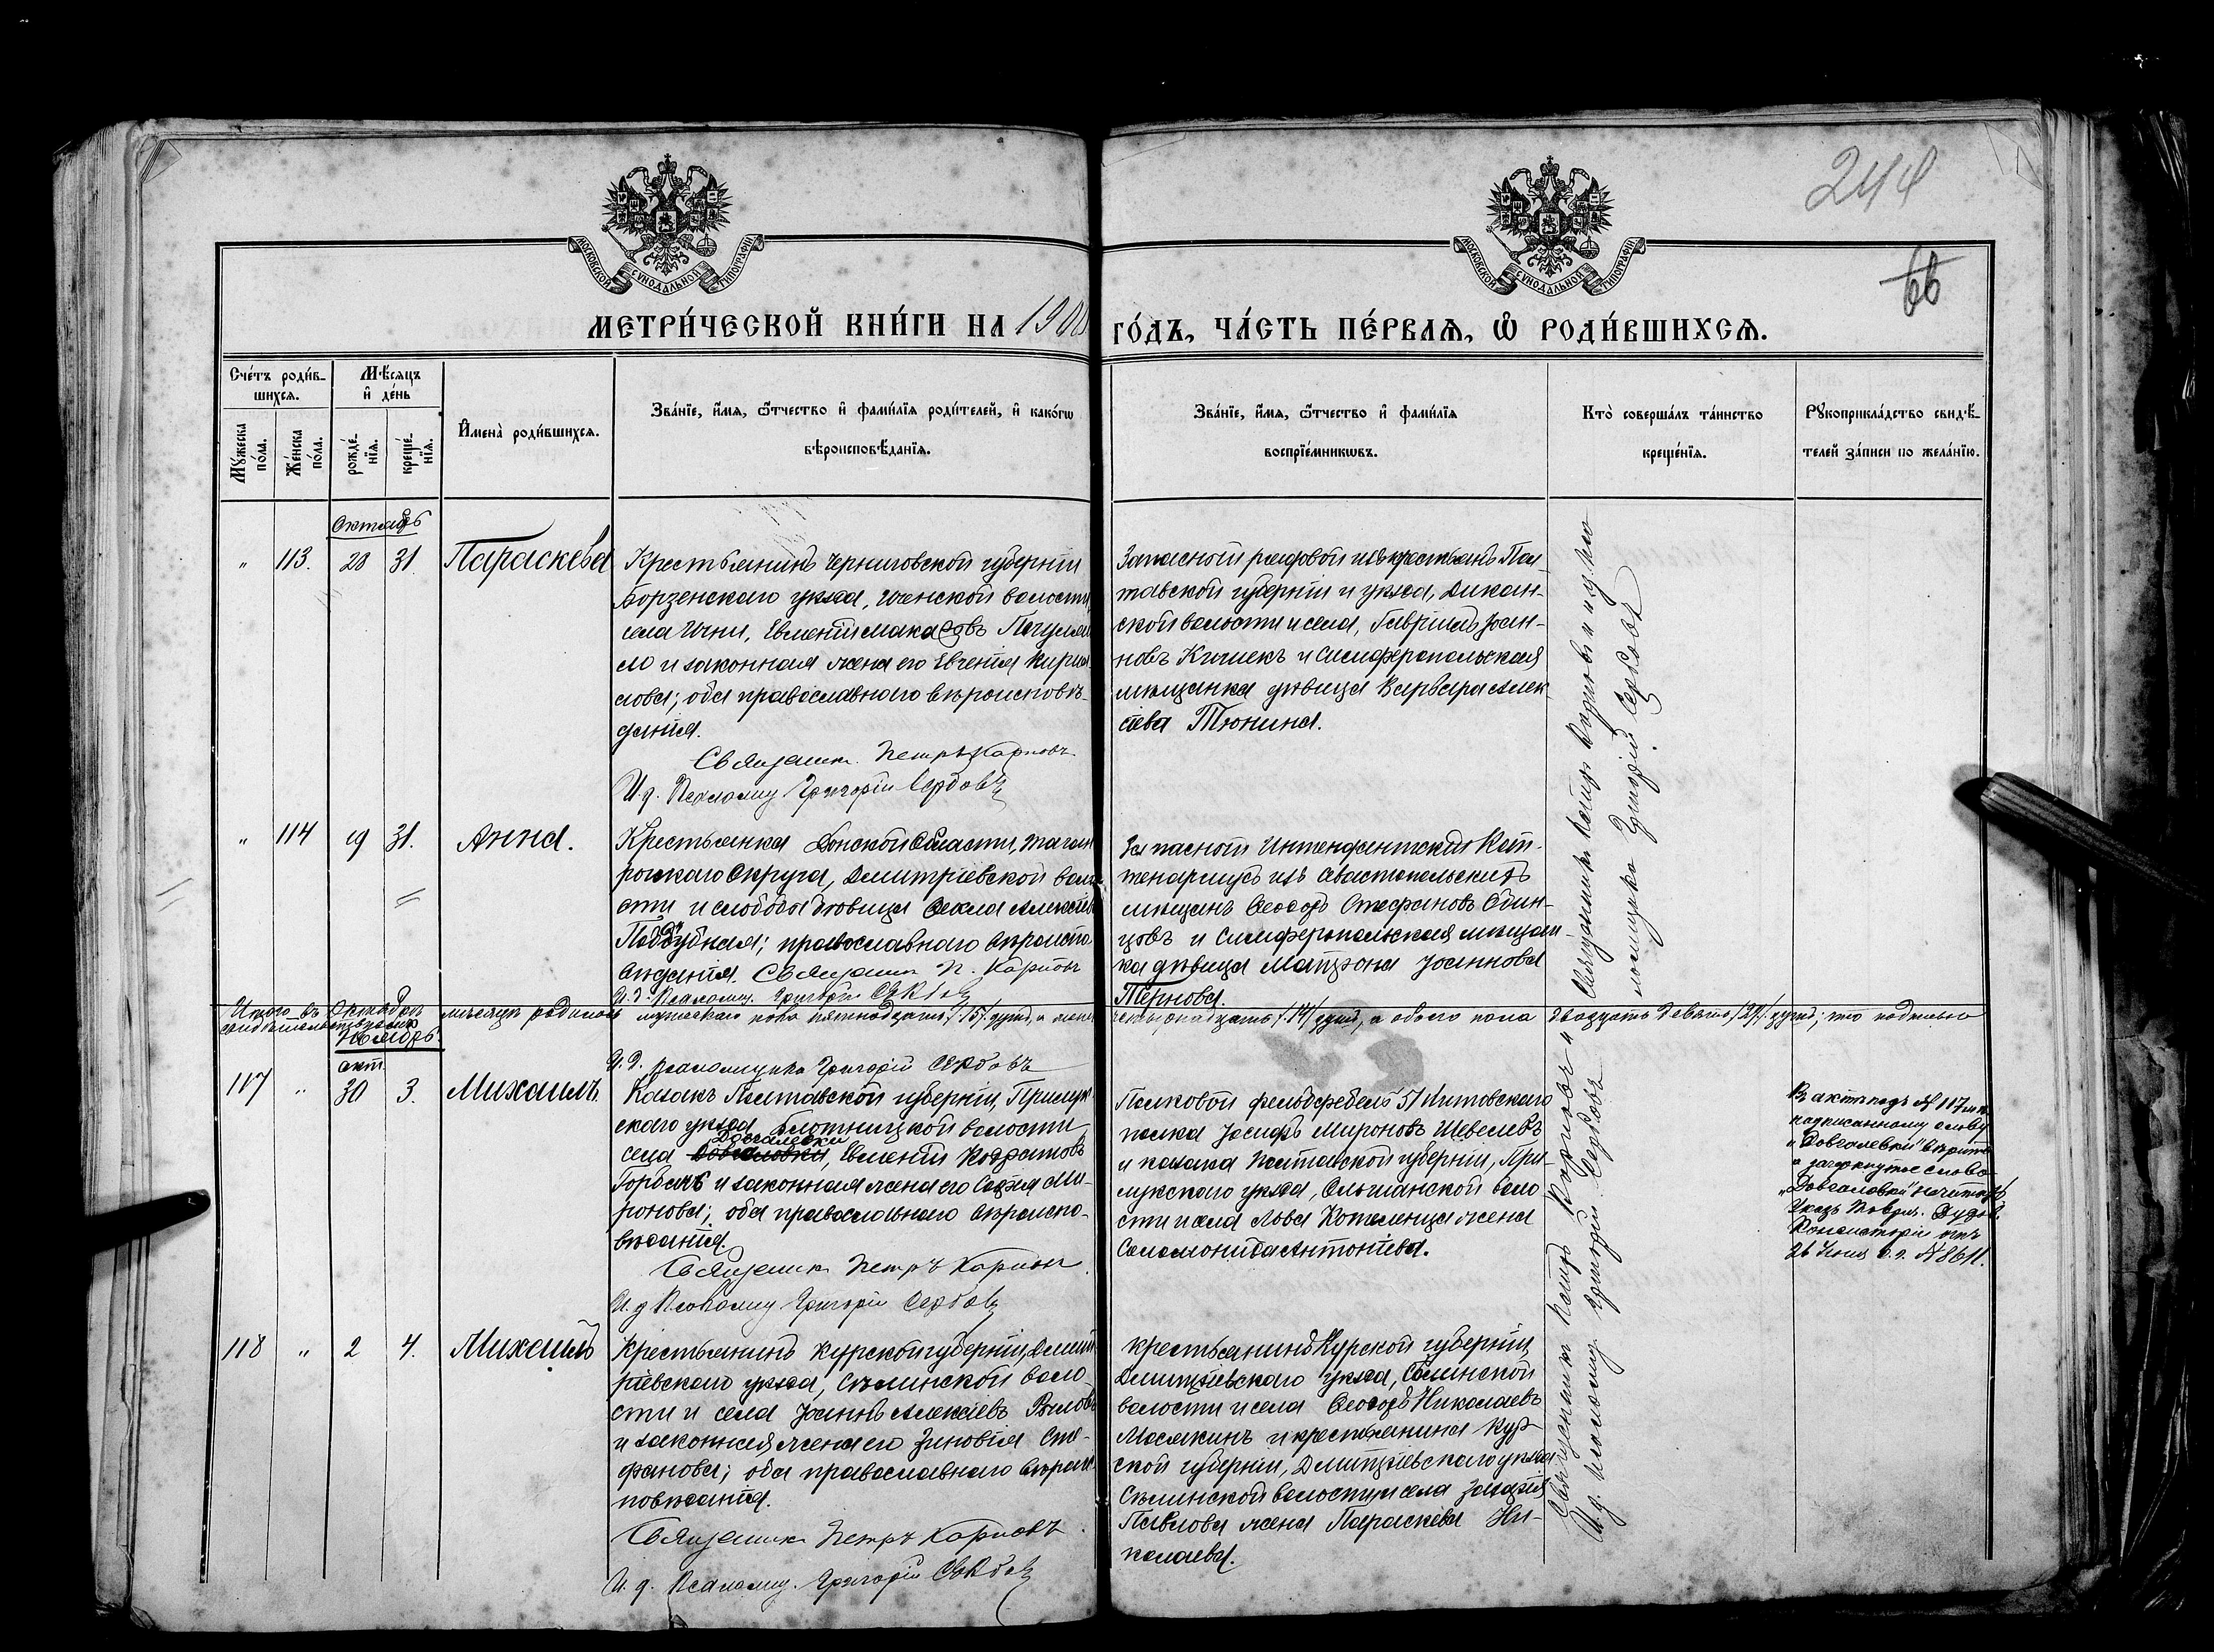 244
66
МОСКОВСКОЙ СУНОДАЛЬНОЙ ТИПОГРАФІИ
МОСКОВСКОЙ СУНОДАЛЬНОЙ ТИПОГРАФІИ
МЕТРИ́ЧЕСКОЙ КНИ́ГИ НА 1900
ГО́ДЪ, ЧА́СТЬ ПЕ́РВАЯ, Ѿ РОДИ́ВШИХСЯ.
Сче́тъ роди́в-
шихся.
Мѣ́сяцъ
и҆ де́нь
Мꙋ́жеска по́ла.
Же́нска по́ла.
рожде́-
нїя.
креще́-
нїя.
И҆мена̀ роди́вшихся.
Зва́нїе, и҆́мя, ѻ҆́тчество и҆ фами́лїя роди́телей, и҆ како́гѡ
вѣроисповѣ́данїя.
Зва́нїе, и҆́мя, ѻ҆́тчество и҆ фами́лїя
воспрїе́мникѡвъ.
Кто̀ соверша́лъ та́инство
креще́нїя.
Рꙋкоприкла́дство свидѣ́-
телей за́писи по жела́нїю.
Октябрь
" 113. 28 31. Параскева
Крестьянинъ Черниговской губерніи
Борзенскаго уѣзда, Иченской волости
села Ични, Евменій Макаровъ
и законная жена его Евгенія Кирил
лова; оба православнаго вѣроисповѣ-
данія.
Священник Петръ Карповъ
И. д. Псаломщ. Григорій Сербовъ
Запасной рядовой изъ крестьянъ Пол-
тавской губерніи и уѣзда, Дикан-
ской волости и села, Гавріилъ Іоан-
новъ и Симферопольская
мѣщанка дѣвица Варвара Алек
сѣева Тюнина.
Священникъ Петръ Карповъ и и. д. пса
ломщика Григорій Сербовъ
" 114 19 31. Анна.
Крестьянка Донской Области, Таган
рогскаго Округа, Димитріевской воло
сти и слободы дѣвица Ѳекла Алексѣева
Поддубная; православнаго вѣроиспо
вѣданія. Священник П. Карповъ
И. д. Псаломщ. Григорій Сербовъ
Запасной Интендантскій Кап-
тенармусъ изъ Севастопольскихъ
мѣщанъ Ѳеодоръ Стефановъ Один-
цовъ и Симферопольская мѣщан-
ка дѣвица Матрона Іоаннова
Тернова.
Итого въ Октябрѣ мѣсяцѣ родилось мужескаго пола пятнадцать /15/ душъ, а женск
четырнадцать /14/ душъ, а обоего пола двадцать девять /29/ душъ; что подписью
свидѣтельствуемъ
И. д. псаломщика Григорій Сербовъ
Ноябрь.
окт.
117 " 30 3. Михаилъ.
Казакъ Полтавской губерніи, Прилук
скаго уѣзда волости
Довгалевки
села Довгаловки, Евменій Кодратовъ
Горбачъ и законная жена его Софія Ми-
ронова; оба православнаго вѣроиспо-
вѣданія.
Священник Петръ Карповъ
И. д. Псаломщ. Григорій Сербовъ
Полковой фельдфебель 51 Литовскаго
полка Іосифъ Мироновъ Шевелевъ
и казака Полтавской губерніи, При-
лукскаго уѣзда, Ольшанской воло
сти и села Льва Котеленца жена
Соломонида Антоніева.
Священникъ Петръ Карповъ и
И. д. псаломщ. Григорій Сербовъ
В актѣ подъ № 117 м. п.
надписанному слову
"Довгалевки" вѣрить
а зачеркнутое слово
"Довгаловки" не читать
Указъ Таврич. Духов.
Консисторіи отъ
26 Іюня с. г. № 8611.
118 " 2 4. Михаилъ
Крестьянинъ Курской губерніи, Димит
ріевскаго уѣзда, Сѣлинской воло
сти и села Іоаннъ Алексѣевъ
и законная жена его Зиновія Сте-
фанова; оба православнаго вѣроис
повѣданія.
Священник Петръ Карповъ
И. д. Псаломщ. Григорій Сербовъ
крестьянинъ Курской губерніи,
Димитріевскаго уѣзда, Сѣлинской
волости и села Ѳеодоръ Николаевъ
Масякинъ и крестьянина Кур-
ской губерніи, Димитріевскаго уѣзда
Сѣлинской волости и села Захарія
Павлова жена Параскева Ни-
колаева.